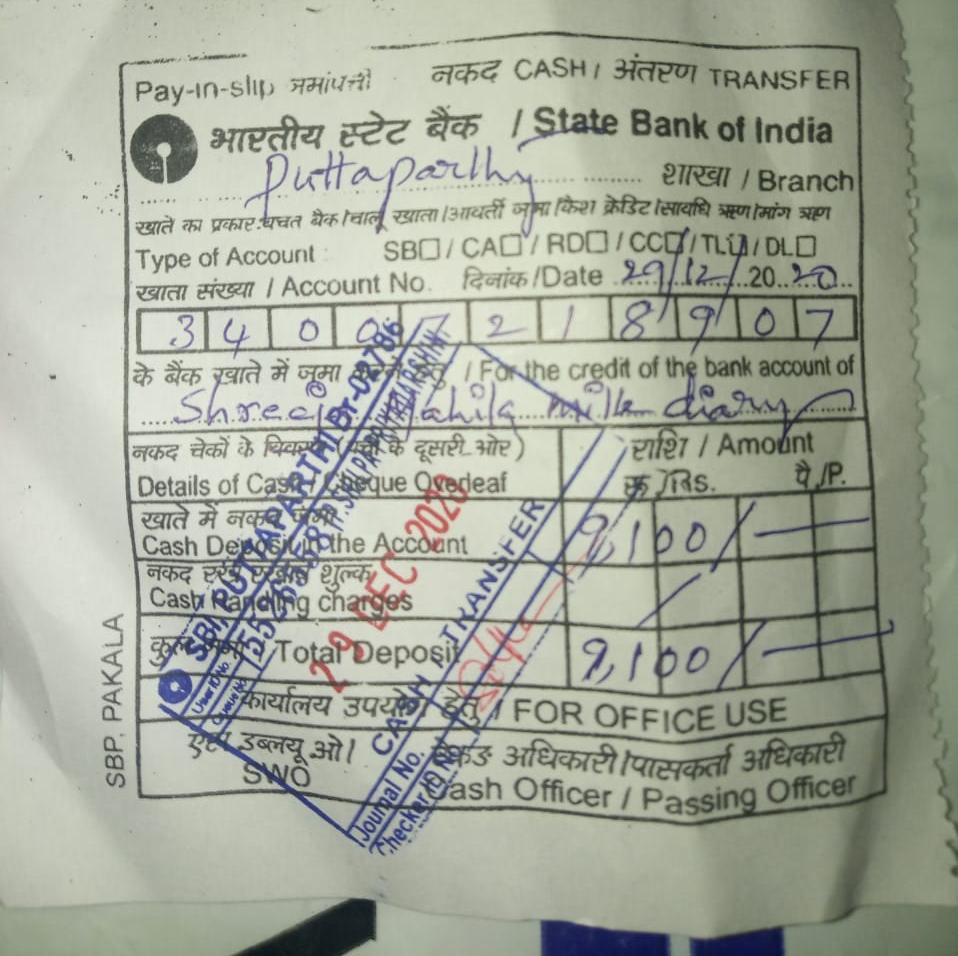 Pay-in-slip जमापर्ची नकद CASH / अंतरण TRANSFER
भारतीय स्टेट बैंक / State Bank of India
Puttaparthy शाखा / Branch
खाते का प्रकार बचत बैंक/चालू खाता/आवर्ती जमा/कैश क्रेडिट/सावधि ऋण/मांग ऋण
Type of Account : SB☐ / CA☐ / RD☐ / CC☐ / TL☐ / DL☐
खाता संख्या / Account No. दिनांक /Date 29/12/2020
3 4 0 0 7 2 1 8 9 0 7
के बैंक खाते में जमा हेतु / For the credit of the bank account of
milk diary
नकद चेकों के दूसरी ओर) राशि / Amount
Details of Cash / Cheque Overleaf रू /Rs. पै./P.
खाते में नकद जमा
Cash Deposit in the Account 9,100/—
नकद शुल्क
Cash Handling charges
कुल जमा / Total Deposit 9,100/—
कार्यालय उपयोग हेतु / FOR OFFICE USE
एस डब्लयू ओ/
SWO
अधिकारी/पासकर्ता अधिकारी
Cash Officer / Passing Officer
SBP, PAKALA
SBI, PUTTAPARTHI Br-02786
User ID No.
29 DEC 2020
CASH / TRANSFER
Journal No.
Checker ID